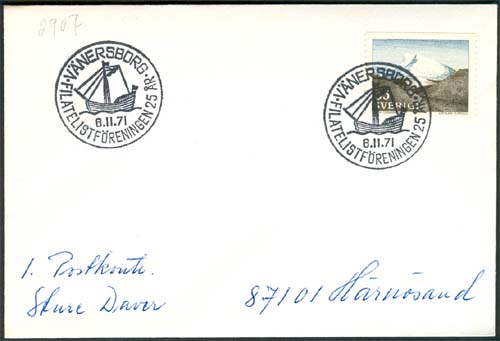 2907
VÄNERSBORG
FILATELISTFÖRENINGEN 25 ÅR
6.11.71
VÄNERSBORG
FILATELISTFÖRENINGEN 25 ÅR
6.11.71
SVERIGE
1. Postkonto.
Sture Daver
87101 Härnösand